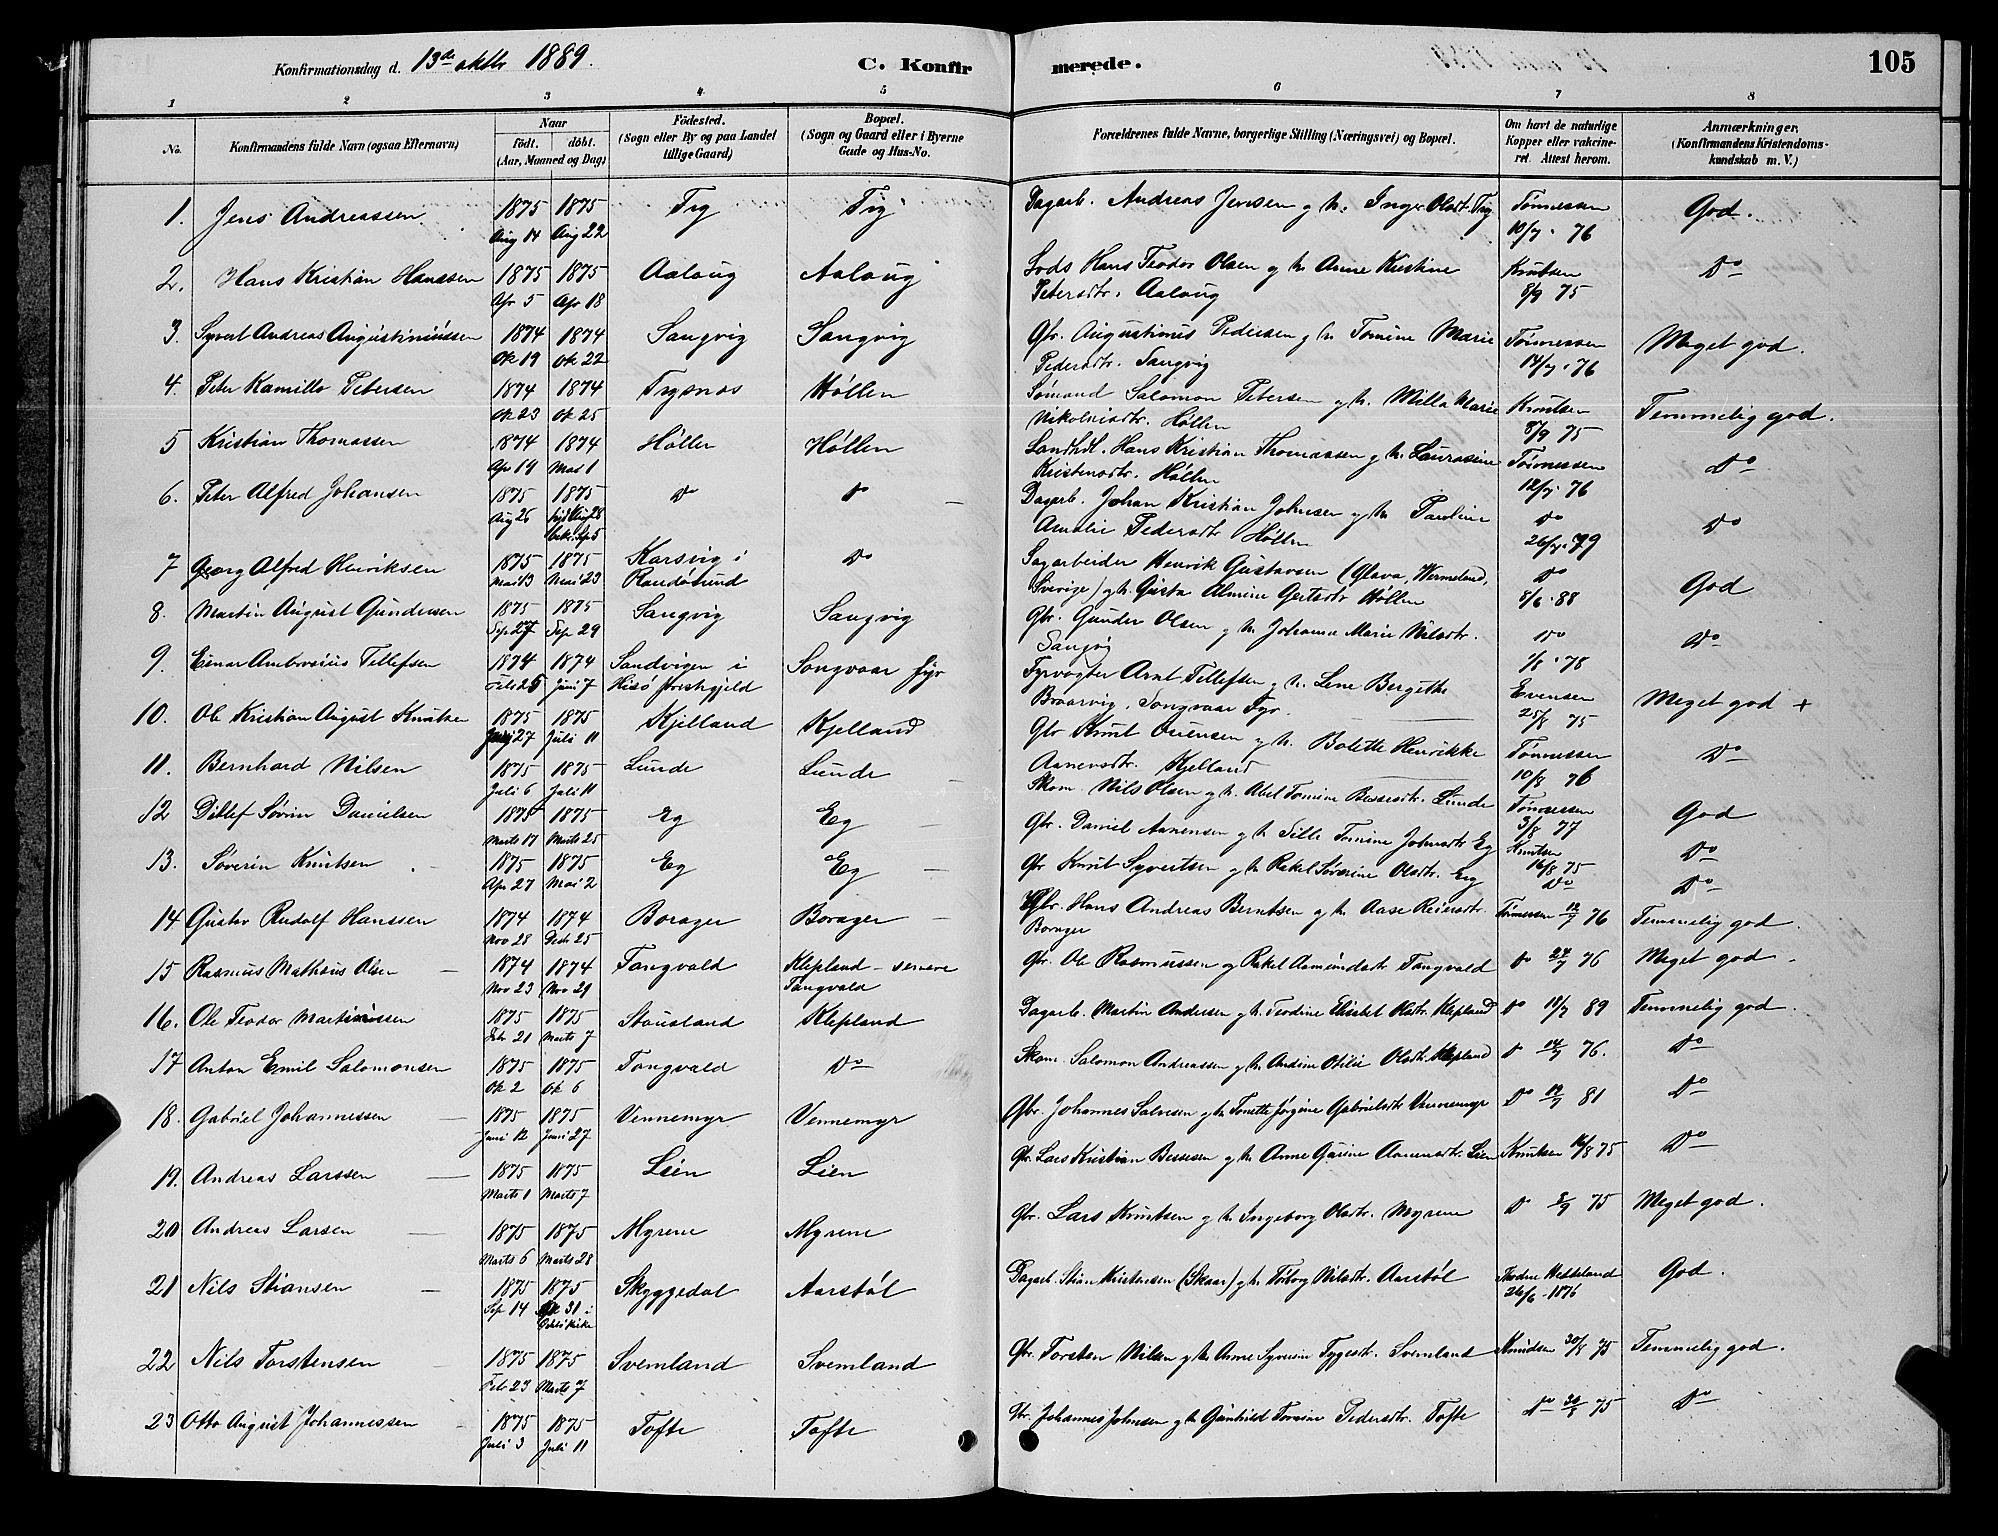 Konfirmationsdag d. 13de oktbr 1889.
C. Konfirmerede.
105
1 2 3 4 5 6 7 8
No.
Konfirmandens fulde Navn (ogsaa Efternavn)
Naar
født. døbt.
(Aar, Maaned og Dag)
Fødested.
(Sogn eller By og paa Landet
tillige Gaard)
Bopæl.
(Sogn og Gaard eller i Byerne
Gade og Hus-No.
Forældrenes fulde Navne, borgerlige Stilling (Næringsvei) og Bopæl.
Om havt de naturlige
Kopper eller vakcine-
ret. Attest herom.
Anmærkninger.
(Konfirmandens Kristendoms-
kundskab m. V.)
1. Jens Andreassen 1875 Aug 14 1875 Aug 22 Try Try Dagarb. Andreas Jensen g h. Inger Olsdt. Try Tønnessen 10/7. 76 God.
2. Hans Kristian Hanssen 1875 Apr 5 1875 Apr 18 Aaløug Aaløug Lods Hans Teodor Olsen g h. Anne Kristine Petersdtr. Aaløug Knutsen 8/9 75 Do
3. Syvert Andreas Augustinussen 1874 Ok 19 1874 Ok 22 Sangvig Sangvig Gbr. Augustinus Pedersen g h. Tomine Marie Pedersdtr. Sangvig Tønnessen 14/7. 76 Meget god.
4. Peter Kamillo Petersen 1874 Ok 23 1874 Ok 25 Trysnes Høllen Sømand Salomon Petersen g h. Milla Marie Høllen Knutsen 8/9 75 Temmelig god.
5 Kristian Thomassen 1874 Apr 19 1874 Mai 1 Høllen Høllen Landhdl. Hans Kristian Thomassen g h. Laurasine Høllen Tønnessen 12/7 76 Do
6. Peter Alfred Johansen 1875 Aug 25 1875 Do Do Dagarb. Johan Kristian Johnsen g h. Amalie Pedersdt Høllen Do 79 Do
7 Georg Alfred Henriksen 1875 Mai 13 1875 Mai 23 Karsvig i Randøsund Do Sagarbeider Henrik Gustavsen (Glava, Wermeland, Sverige) g h. Gusta Almine Høllen Do 8/6. 88 God
8. Martin August Gundersen 1875 Sep 27 1875 Sep 29 Sangvig Sangvig Gbr. Gunder Olsen g h. Johanne Marie Nilsdtr. Sangvig Do 1/8. 78 Do
9. Einar Ambrosius Tellefsen 1874 Feb 25 1874 Juni 7 Sandvigen i Hisø prestegjeld Songvaar fyr Fyrvogter Arnt Tellefsen g h. Lene Bergithe Braarvig. Songvaar Fyr. Evensen 25/8 75 Meget god +
10. Ole Kristian August Knutsen 1875 Juni 27 1875 Juli 11 Kjelland Kjelland Gbr Knut g h. Bolette Henrikke Aanensdtr. Kjelland Tønnessen 10/8 76 Do
11. Bernhard Nilsen 1875 Juli 6 1875 Juli 11 Lunde Lunde Skom. Nils Olsen g h. Abel Tomine Bessesdtr. Lunde Tønnessen 3/8 77 God
12 Ditlef Sørin Danielsen 1875 Marts 17 1875 Marts 25 Eg Eg Gbr. Daniel Aanensen g h. Sille Tomine Johnsdtr Eg Knutsen 16/8 75 Do
13. Søverin Knutsen 1875 Apr 27 1875 Mai 2 Eg Eg Gbr Knut Syvertsen g h. Rakel Søverine Olsdtr. Eg Do Do
14 Gustav Rudolf Hanssen 1874 Nov 28 1874 Desb 25 Borager Borager Gbr. Hans Andreas Berntsen g h. Aase Reiersdtr. Borager Tønnessen 12/7 76 Temmelig god.
15 Rasmus Mathæus Olsen 1874 Nov 23 1874 Nov 29 Tangvald Klepland - senere Tangvald Gbr. Ole Rasmussen g Rakel Aamundsdt Tangvald Do 76 Meget god.
16. Ole Teodor Martinussen 1875 Feb 21 1875 Marts 7 Stousland Klepland Dagarb. Martin Andersen g h. Teodine Elisabet Olsdtr. Klepland Do 18/7 89 Temmelig god.
17 Anton Emil Salomonsen 1875 Ok 2 1875 Ok 6 Tangvald Do Skom. Salomon Andreassen g h. Andine Otilie Olsdt. Klepland Do 14/7 76. Do
18. Gabriel Johannessen 1875 Juni 12 1875 Juni 27 Vennemyr Vennemyr Gbr. Johannes Salvesen g h. Tonette Jørgine Gabrielsdtr Vennemyr Do 12/7 81 Do
19. Andreas Larssen 1875 Marts 1 1875 Marts 7 Lien Lien Gbr. Lars Kristian Bessesen g h. Anne Gurine Aanensdtr. Lien Knutsen 16/8 75 Do
20 Andreas Larsen 1875 Marts 6 1875 Marts 28 Myrene Myrene Gbr. Lars Knutsen g h. Ingeborg Olsdtr. Myrene Do 8/9 75 Meget god.
21 Nils Stiansen 1875 Sep 14 1875 Ok 31 i Kirke Skyggedal Aarstøl Dagarb. Stian Kristensen (Skaar) g h. Torborg Nilsdtr. Aarstøl Hesseland 26/6 1876 God.
22 Nils Torstensen 1875 Feb 23 1875 Marts 7 Svemland Svemland Gbr. Torsten Nilsen g h. Anne Syverine Tygesdtr. Svemland Knudsen 30/8 75 Temmelig god.
23 Otto August Johannessen 1875 Juli 3 1875 Juli 11 Tofte Tofte Gbr. Johannes Johnsen g h Gunhild Tomine Pedersdtr. Tofte Do 30/8 75 Do